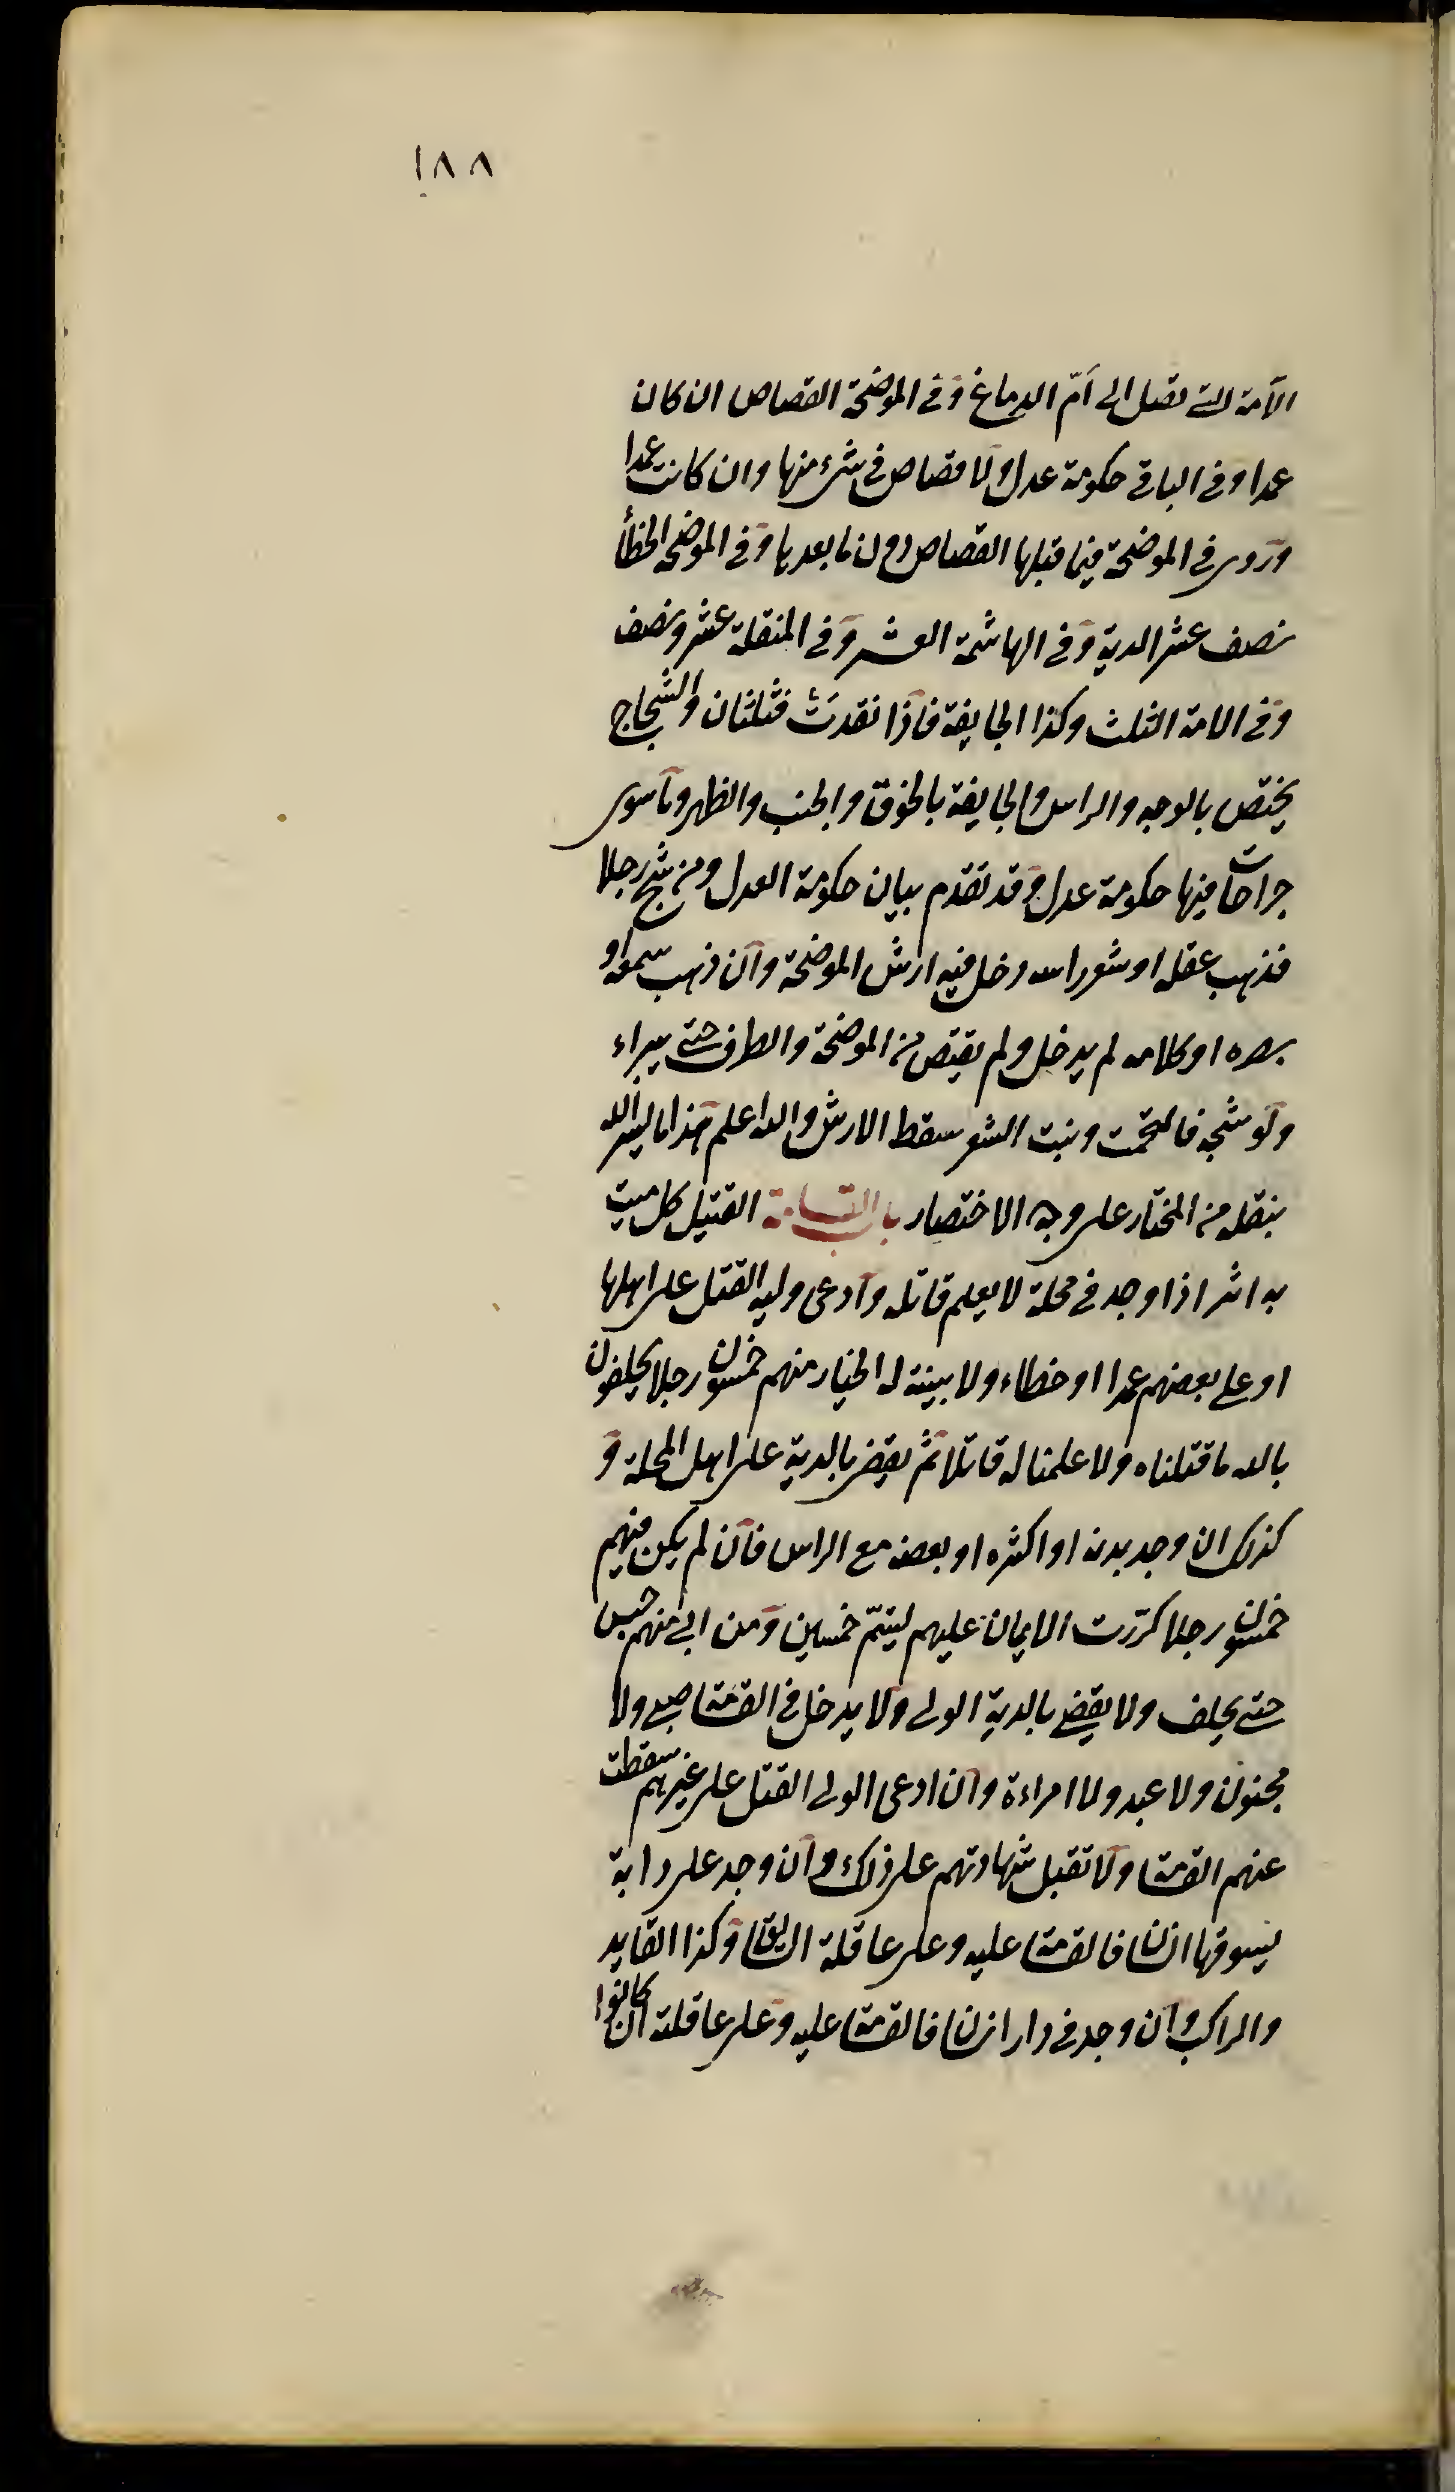 ١٨٨
الآمة التى تصل الى اَمّ الدماغ وفى الموضحة القصاص ان كان
عمدا وفى الباقى حكومة عدل ولا قصاص فى شئ منها وان كانت عمدا
وروى فى الموضحة فيما قبلها القصاص دون ما بعدها وفى الموضحة الخطأ
نصف عشر الدية وفى الهاشمة العشر وفى المنقلة عشر ونصف
وفى الامة الثلث وكذا الجايفة فاذا نفدت فثلثان والشجاج
يختص بالوجه والراس والجايفة بالجوف والجنب والظهر وما سوى
جراحات فيها حكومة عدل وقد تقدم بيان حكومة العدل ومن شج رجلا
فذهب عقله او شعر راسه دخل فيه ارش الموضحة وان ذهب سمعه او
بصره او كلامه لم يدخل ولم يقتص من الموضحة والطرف حتى يبراء
ولو شجه فالتحمت ونبت الشعر سقط الارش والله اعلم هذا ما يسر الله
بنقله من المختار على وجه الاختصار باب القسامة القتيل كل ميت
به اثر اذا وجد فى محلة لا يعلم قاتله وادعى وليه القتل على اهلها
او على بعضهم عمدا او خطاء ولا بينة له اختار منهم خمسون رجلا يحلفون
بالله ما قتلناه ولا علمنا له قاتلا ثم يقضى بالدية على اهل المحلة و
كذلك ان وجد بدنه او اكثره او بعضه مع الراس فان لم يكن فيهم
خمسون رجلا كررت الايمان عليهم ليتمّ خمسين ومن ابى منهم حبس
حتى يحلف ولا يقضى بالدية الولى ولا يدخل فى القسامة صبى ولا
مجنون ولا عبد ولا امراءة وان ادعى الولى القتل على غيرهم سقطت
عنهم القسامة ولا تقبل شهادتهم على ذلك وان وجد على دابة
يسوقها انسان فالقسامة عليه وعلى عاقلة السايق وكذا القايد
والراكب وان وجد فى دار انسان فالقسامة عليه وعلى عاقلته ان كانوا